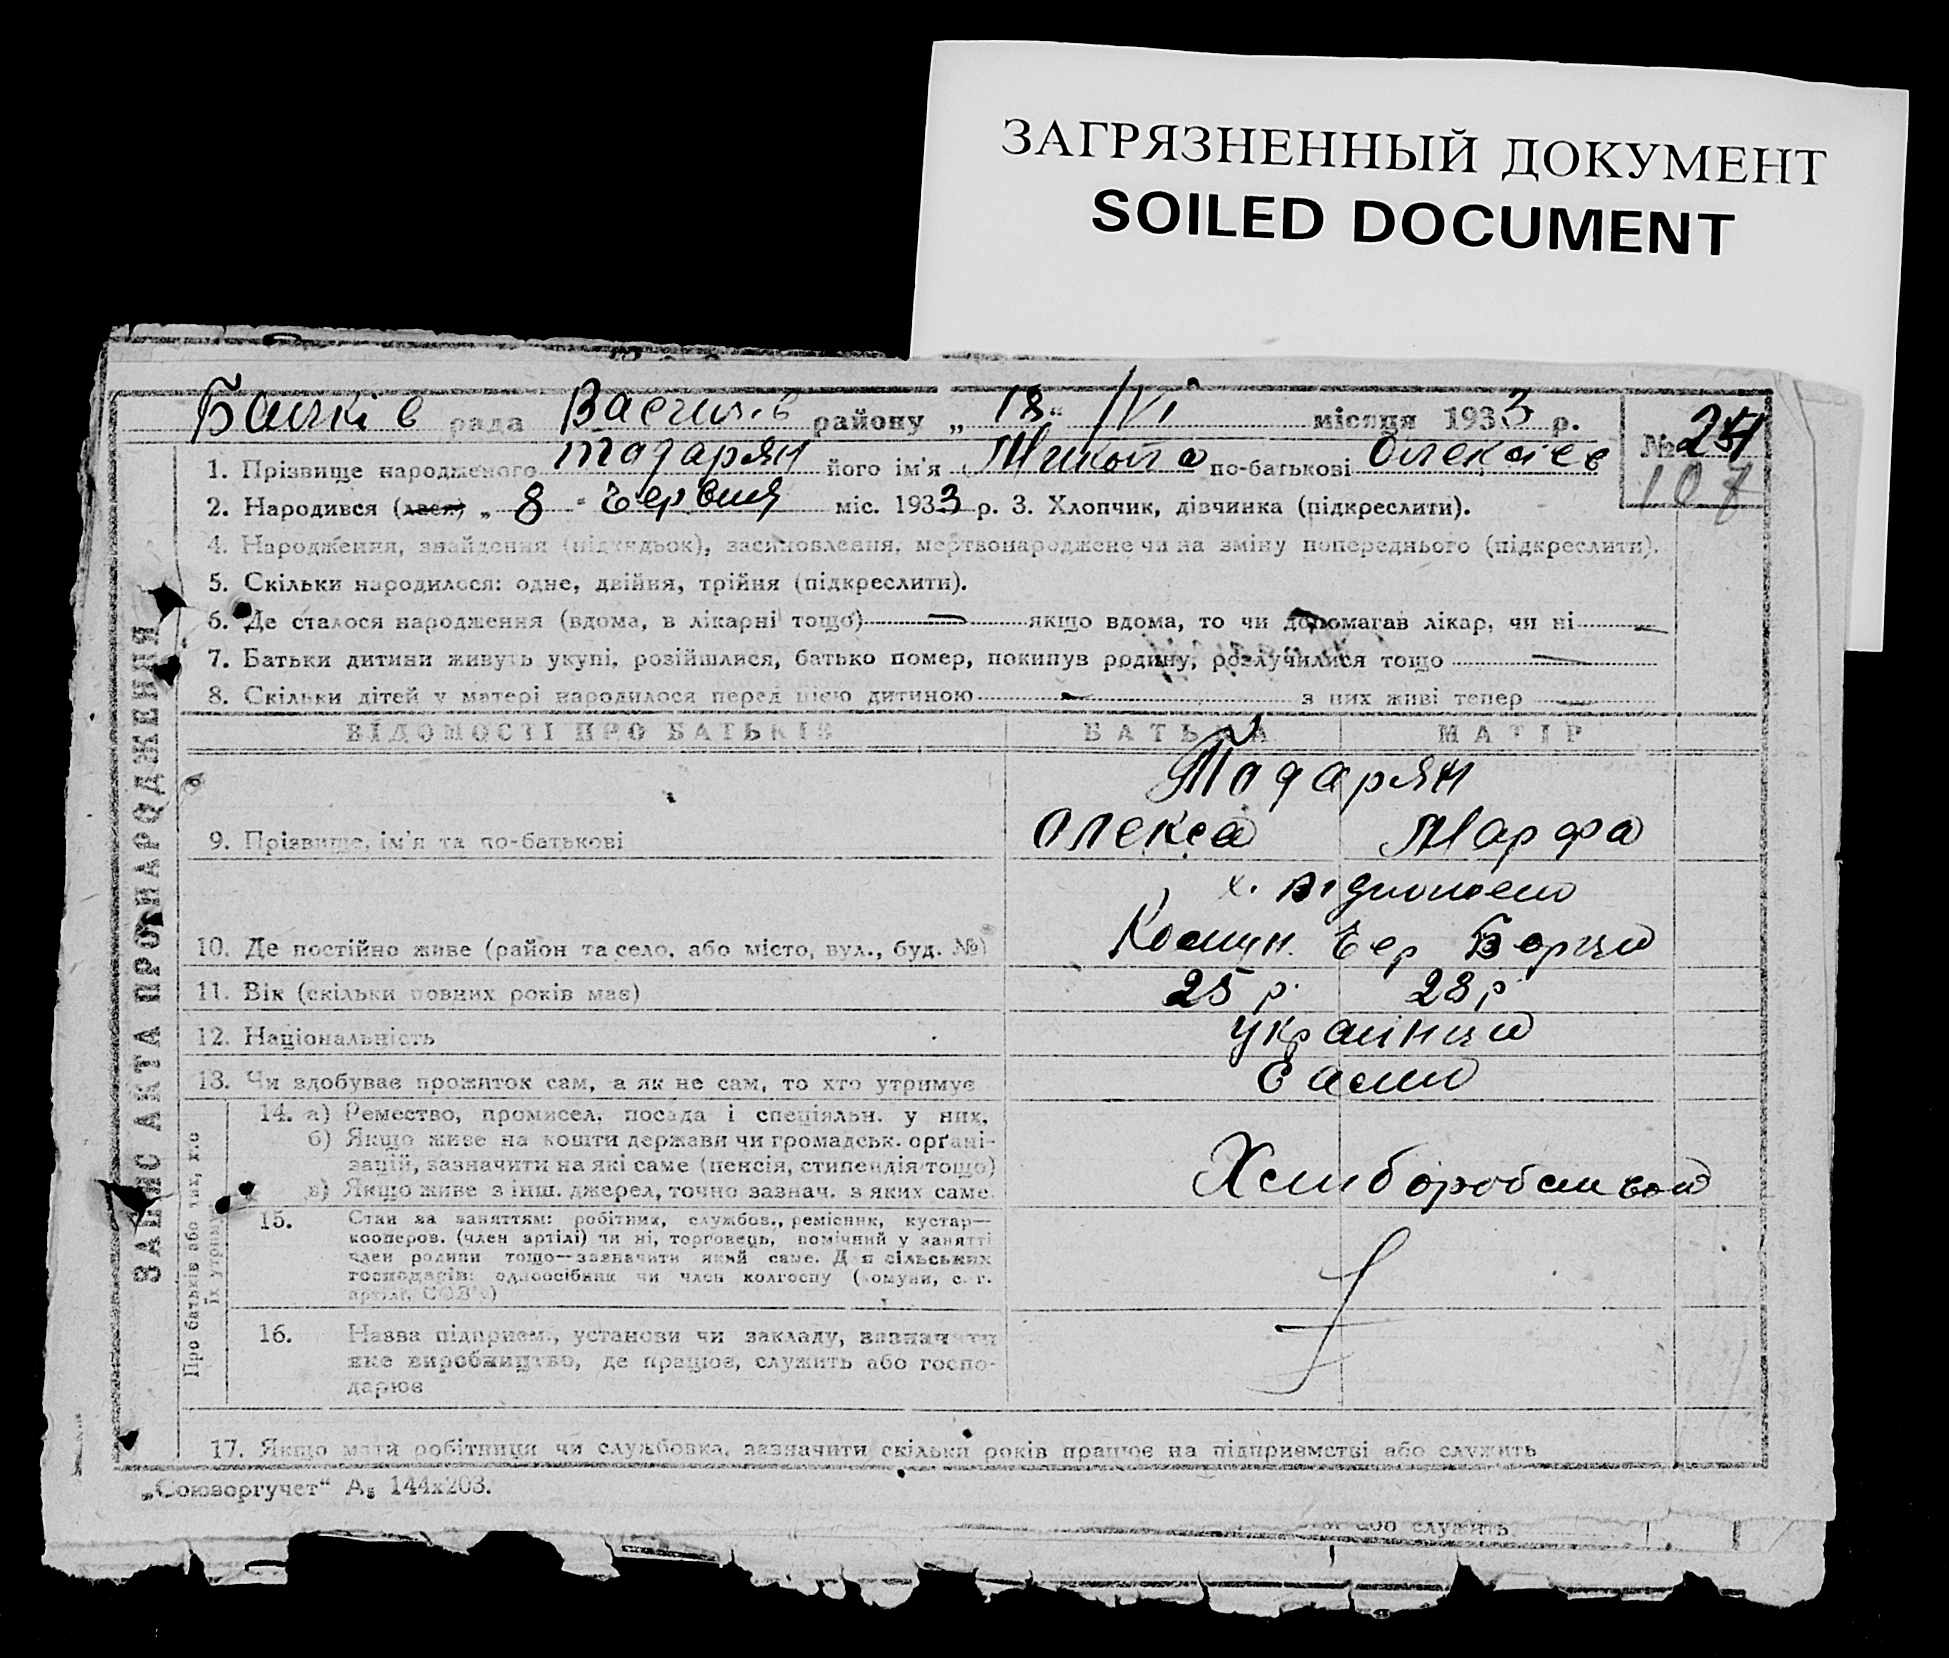 ЗАГРЯЗНЕННЫЙ ДОКУМЕНТ
SOILED DOCUMENT
рада Васил.в району „18“ /VI місяця 1933 р.
№
107
1. Прізвище народженого Тодарян його ім'я Микола по-батькові Олексіев
2. Народився (лася) „ 8 “ Червня міс. 1933 р. 3. Хлопчик, дівчинка (підкреслити).
4. Народження, знайдення (підкидьок), засиновлення, мертвонароджене чи на зміну попереднього (підкреслити).
5. Скільки народилося: одне, двійня, трійня (підкреслити).
6. Де сталося народження (вдома, в лікарні тощо) — якщо вдома, то чи допомагав лікар, чи ні —
7. Батьки дитини живуть укупі, розійшлися, батько помер, покинув родину, розлучилися тощо —
8. Скільки дітей у матері народилося перед цією дитиною — з них живі тепер —
ЗАПИС АКТА ПРО НАРОДЖЕННЯ
ВІДОМОСТІ ПРО БАТЬКІВ БАТЬКО МАТІР
Тодарян
9. Прізвище, ім'я та по-батькові Олекса Марфа
х.
10. Де постійно живе (район та село, або місто, вул., буд. №) Комун. Чер
11. Вік (скільки повних років має) 25 р. 28 р.
12. Національність українци
13. Чи здобуває прожиток сам, а як не сам, то хто утримує Сами
Про батьків або тих, х.о їх утримує
14. а) Ремество, промисел, посада і спеціяльн. у них.
б) Якщо живе на кошти держави чи громадськ. орґані-
зацій, зазначити на які саме (пенсія, стипендія тощо)
в) Якщо живе з інш. джерел, точно зазнач. з яких саме.
Хлиборобством
15. Стан за заняттям: робітник, службов., ремісник, кустар—
кооперов. (член артілі) чи ні, торговець, помічний у занятті
член родини тощо—зазначити який саме. Для сільських
господарів: одноосібник чи член колгоспу (комуни, с. г.
артілі, СОЗ'у)
16. Назва підприєм., установи чи закладу, зазначити
яке виробництво, де працює, служить або госпо-
дарює
17. Якщо мати робітниця чи службовка, зазначити скільки років працює на підприємстві або служить
„Союзоргучет“ А₅ 144х203.
або служить